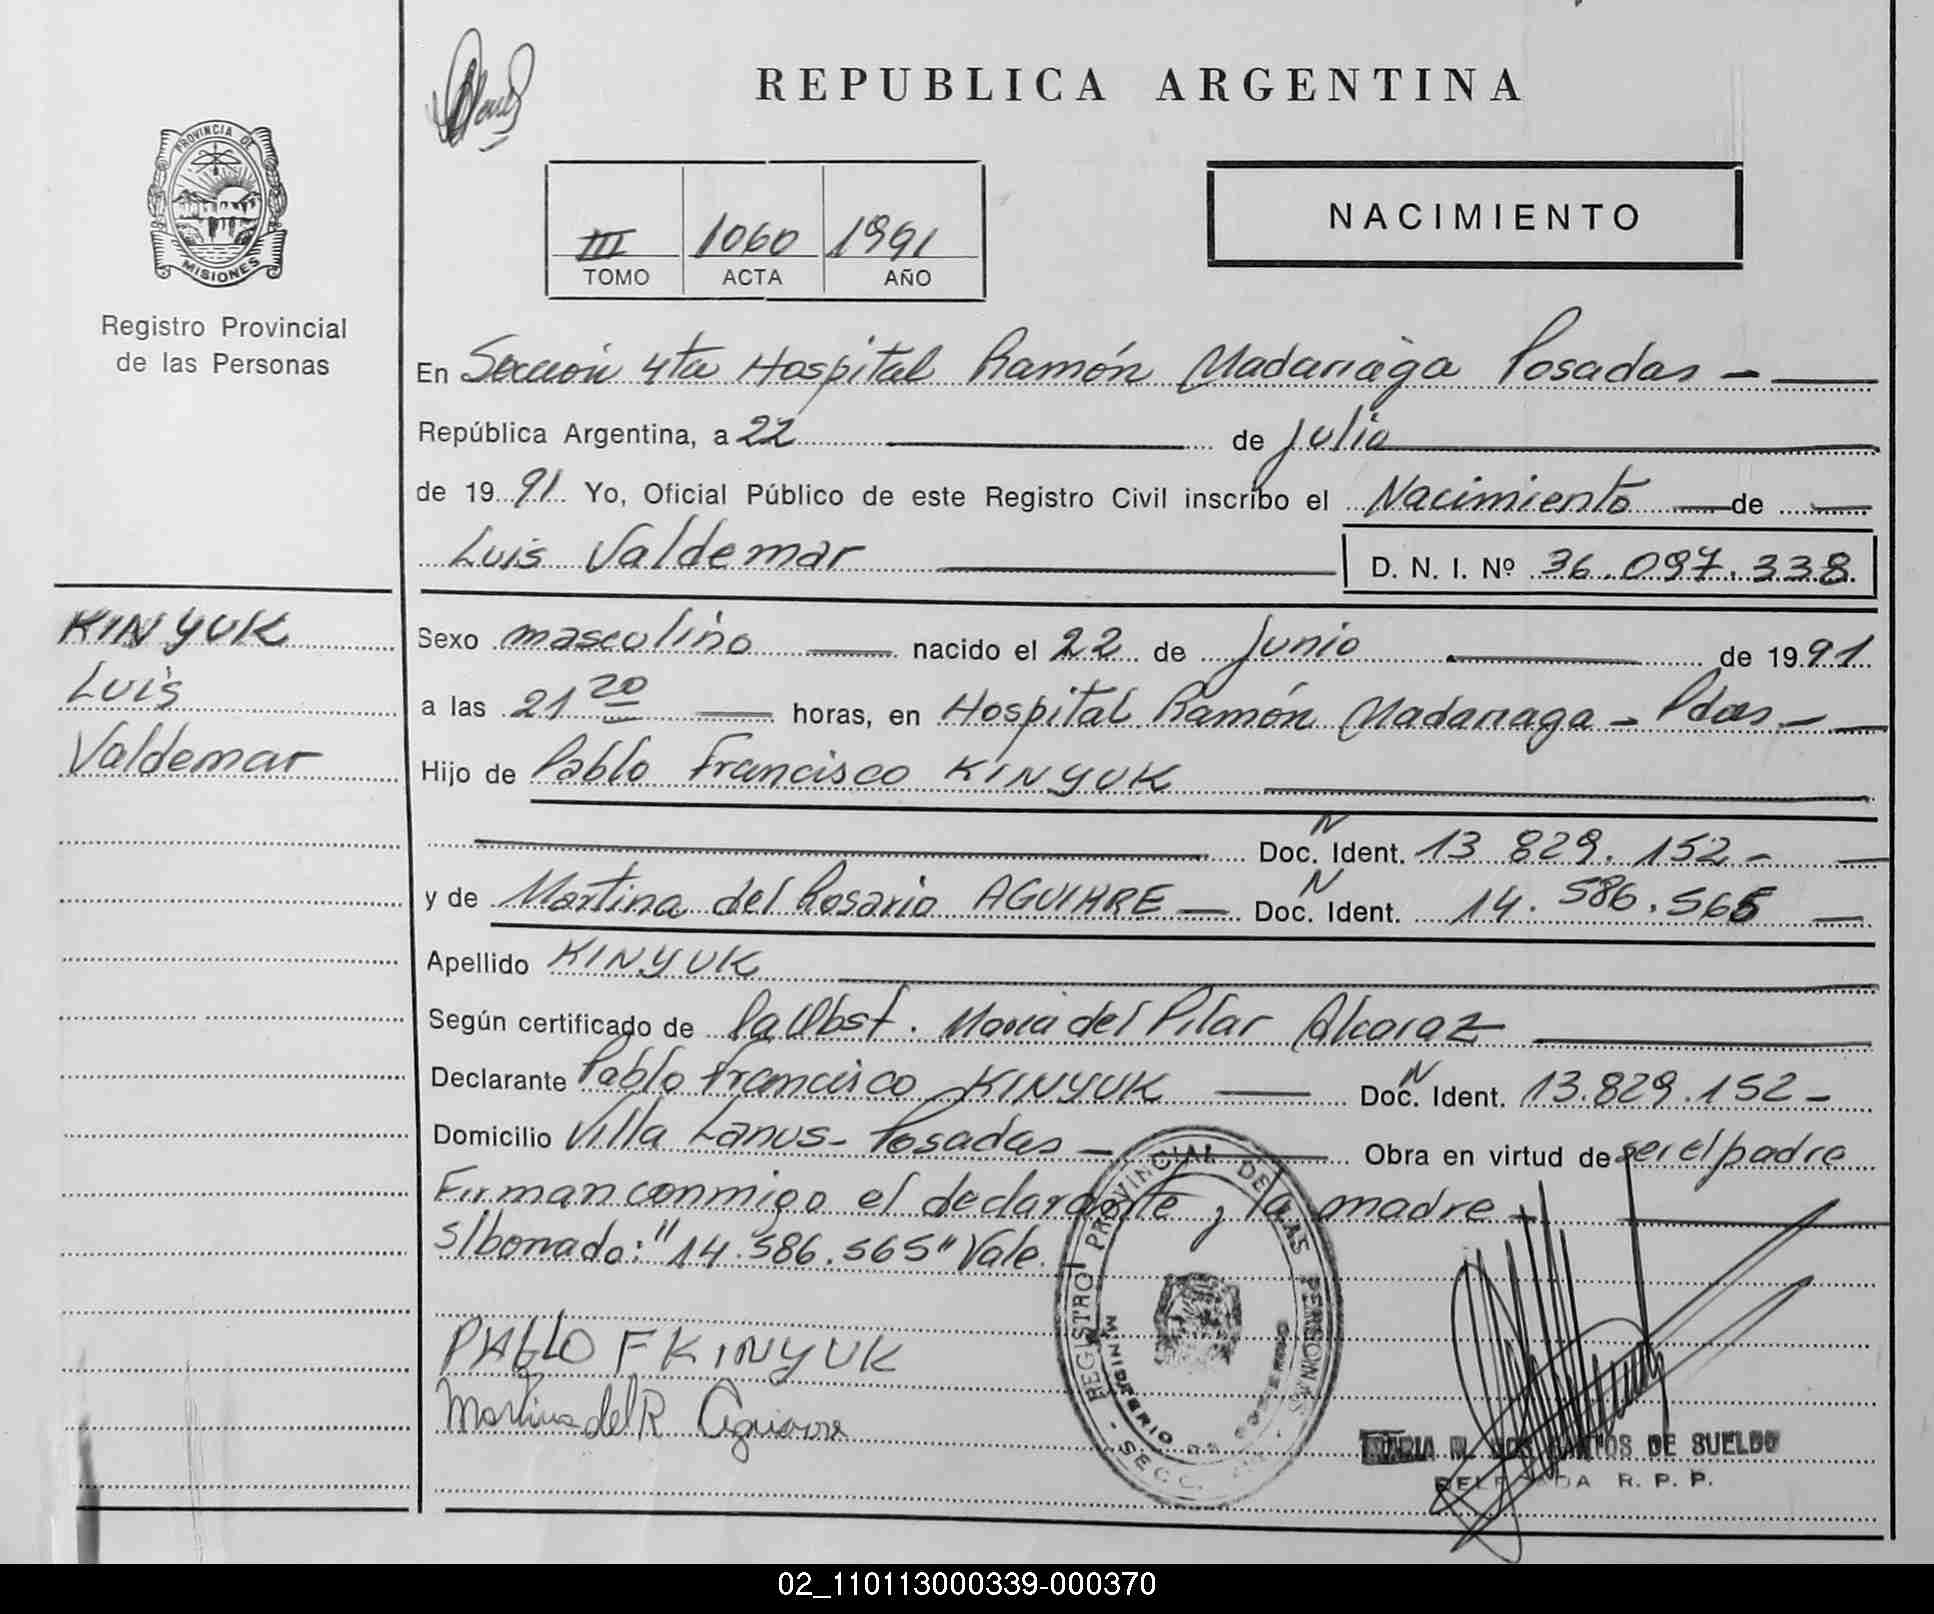 REPUBLICA ARGENTINA
PROVINCIA DE
MISIONES
Registro Provincial
de las Personas
III 1060 1991
TOMO ACTA AÑO
NACIMIENTO
En Sección 4ta Hospital Ramón Madariaga Posadas -
República Argentina, a 22 de Julio
de 1991 Yo, Oficial Público de este Registro Civil inscribo el Nacimiento de
Luis Valdemar D. N. I. Nº 36.097.338
KINYUK
Luis
Valdemar
Sexo masculino nacido el 22 de Junio de 1991
a las 21 20 horas, en Hospital Ramón Madariaga - Pdas -
Hijo de Pablo Francisco KINYUK
N
Doc. Ident. 13 829.152 -
N
y de Martina del Rosario AGUIRRE Doc. Ident. 14.586.565
Apellido KINYUK
Según certificado de la Obst. Maria del Pilar Alcaraz
N
Declarante Pablo Francisco KINYUK Doc. Ident. 13.829.152 -
Domicilio Villa Lanus - Posadas - Obra en virtud de ser el padre
Firman conmigo el declarante y la madre -
s/borrado: "14.586.565" Vale.
PABLO F KINYUK
Martina del R Aguirre
REGISTRO PROVINCIAL DE LAS PERSONAS
MINISTERIO DE
SECC.
MARIA DOS SANTOS DE SUELDO
DELEGADA R. P. P.
02_110113000339-000370